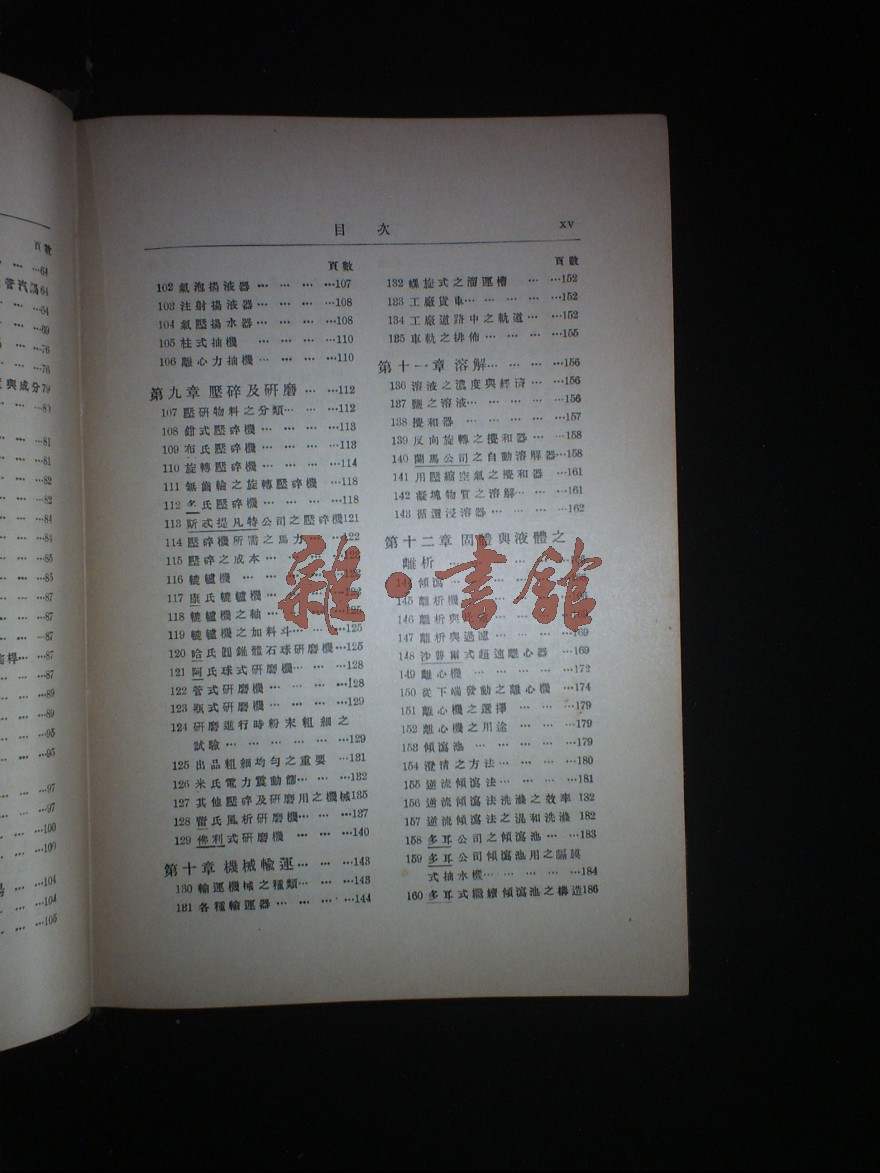 頁數
…64
管汽鍋64
…64
…69
…76
…76
度與成分79
…80
…81
…81
…82
…82
…84
…84
…85
…87
…87
…87
…87
…87
…89
…89
…95
…95
…97
…97
…99
…100
…104
…104
…105
目 次
XV
頁數
102 氣泡揚液器 … … … …107
103 注射揚液器… … … …108
104 氣壓揚水器… … … …108
105 柱式抽機 … … … …110
106 離心力抽機 … … … …110
第九章 壓碎及研磨 … …112
107 壓研物料之分類… … …112
108 鉗式壓碎機… … … …113
109 布氏壓碎機… … … …113
110 旋轉壓碎機… … … …114
111 無齒輪之旋轉壓碎機 …118
112 名氏壓碎機… … … …118
113 斯忒提凡特公司之壓碎機121
114 壓碎機所需之馬力… …122
115 壓碎之成本
116 轆轤機
117 康氏轆轤機
118 轆轤機之軸
119 轆轤機之加料斗… … …125
120 哈氏圓錐體石球研磨機…125
121 阿氏球式研磨機… … …128
122 管式研磨機 … … … …128
123 瓶式研磨機… … … …129
124 研磨進行時粉末粗細之
試驗… … … … … …129
125 出品粗細均勻之重要 …131
126 米氏電力震動篩… … …132
127 其他壓碎及研磨用之機械135
128 雷氏風析研磨機… … …137
129 佛利式研磨機 … … …140
第十章 機械輸運… … …143
130 輸運機械之種類… … …143
131 各種輸運器… … … …144
頁數
132 螺旋式之溜運槽 … …152
133 工廠貨車… … … … …152
134 工廠道路中之軌道… …152
135 車軌之排佈… … … …155
第十一章 溶解… … … …156
136 溶液之濃度與經濟… …156
137 鹽之溶液… … … … …156
138 攪和器… … … … … …157
139 反向旋轉之攪和器… …158
140 蘭馬公司之自動溶解器…158
141 用壓縮空氣之攪和器 …161
142 凝塊物質之溶解… … …161
143 循還浸溶器… … … …162
第十二章 固體與液體之
離析
144 傾瀉
145 離析機
146 離析與
147 離析與過濾 … … … …169
148 沙普爾式超速離心器 …169
149 離心機… … … … … …172
150 從下端發動之離心機 …174
151 離心機之選擇 … … …179
152 離心機之用途 … … …179
153 傾瀉池 … … … … …179
154 澄清之方法… … … …180
155 逆流傾瀉法… … … …181
156 逆流傾瀉法洗滌之效率 132
157 逆流傾瀉法之混和洗滌 182
158 多耳公司之傾瀉池… …183
159 多耳公司傾瀉池用之隔膜
式抽水機… … … … …184
160 多耳式繼續傾瀉池之構造186
雜·書館